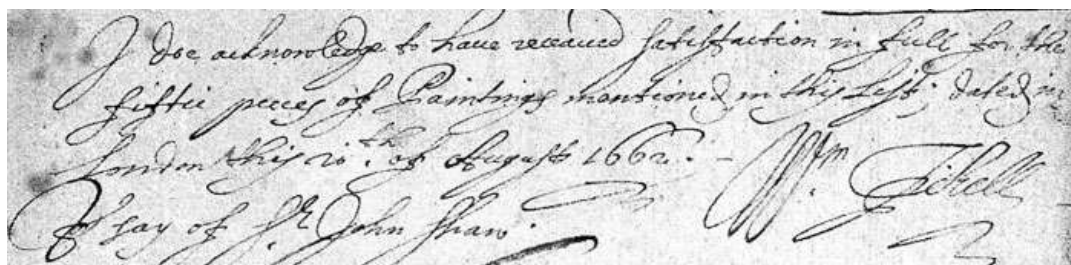 I doe acknowledge to have received satisfaction in full for the
fiftie peeces of Paintings mentioned in this list; dated in
London this 20th. of August 1662. Wm Frizell
I say of Sr. John Shaw.